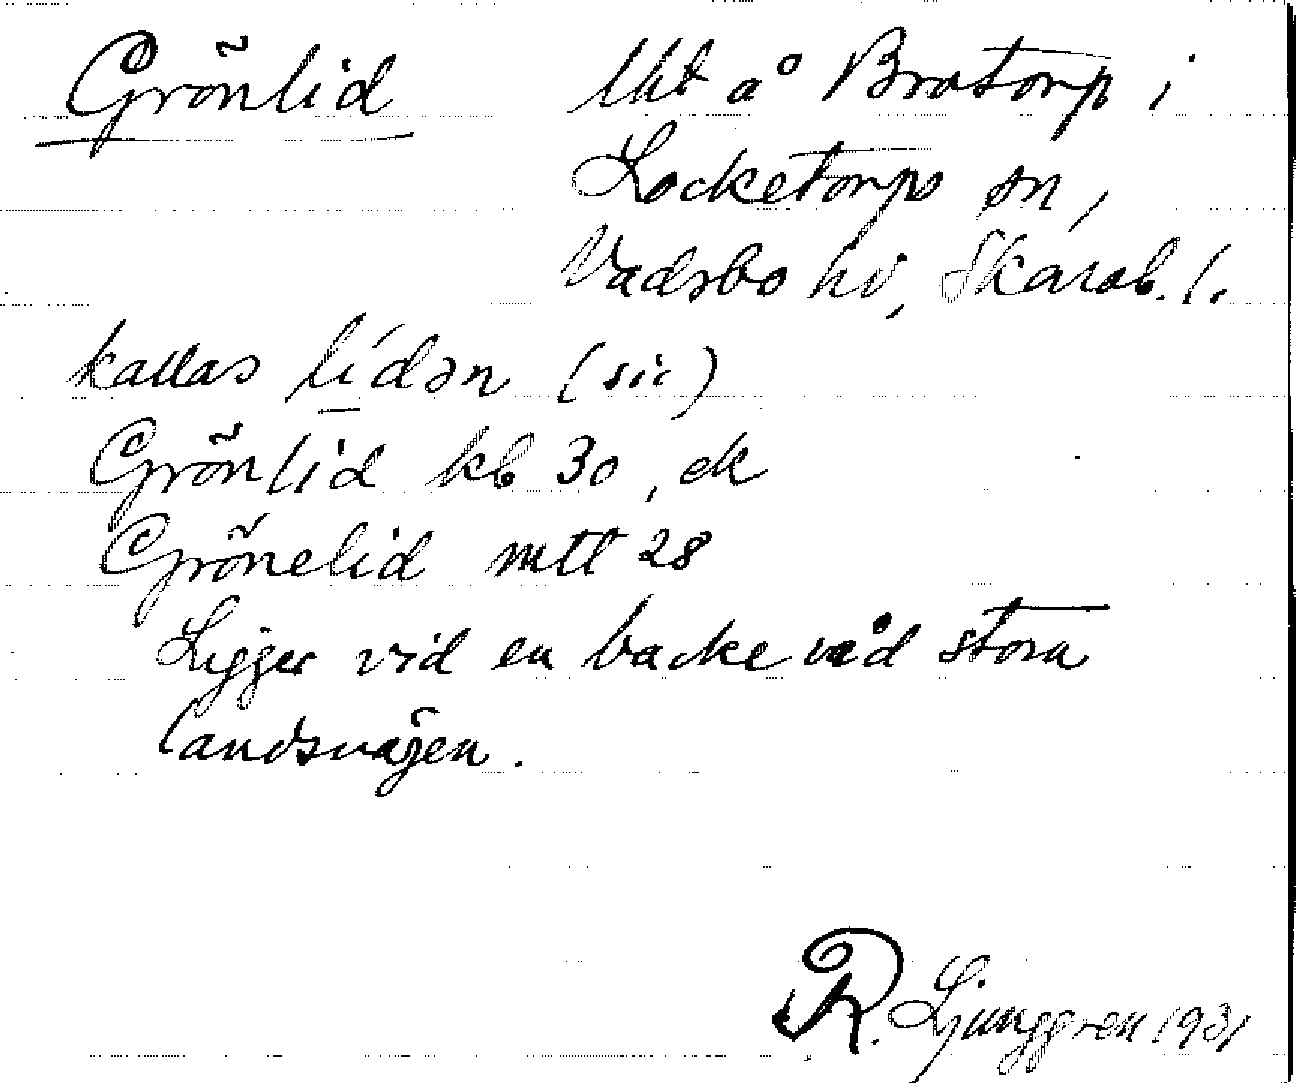 Grönlid lht å Brotorp i
Locketorps sn,
Vadsbo hd, Skarab. l.
kallas lí̠dən (sic)
Grönlid kb 30, ek
Grönelid mtl 28
Ligger vid en backe vid stora
landsvägen.
R. Ljunggren 1931